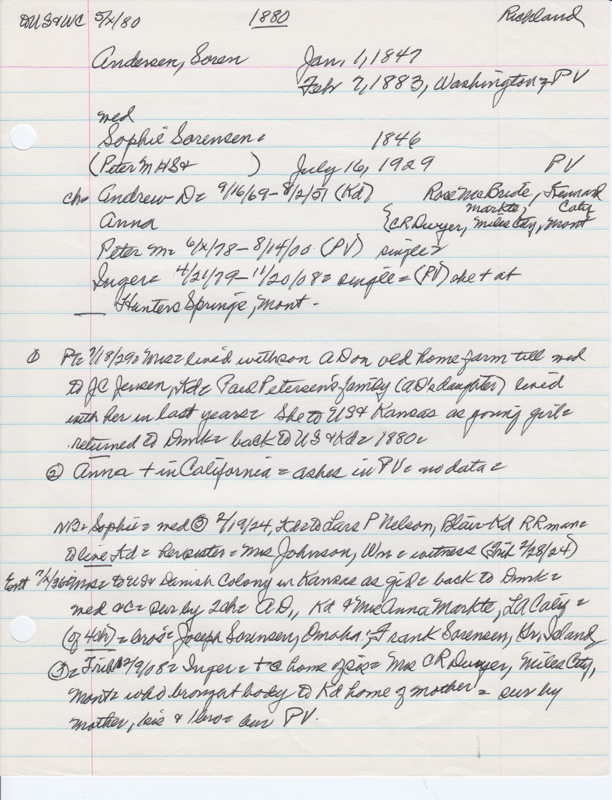 DUS&WC 5/x/80 1880 Richland
Andersen, Soren Jan. 1, 1847
Feb 7, 1883, Washington = PV
med
Sophie Sorensen = 1846
(Peter M HS& ) July 16, 1929 PV
ch= Andrew D= 9/16/69 - 8/2/51 (Kd) Rose McBride, Kennard
Anna Markte, Caly
{CR Dwyer, Miles City, Mont
Peter M= 6/x/78 - 8/14/00 (PV) single =
Inger = 4/21/79 - 11/20/08 = single = (PV) she + at
Hunters Springs, Mont -
① PE 7/18/29 = Mrs = lived with son AD on old home farm till med
to JC Jensen, Kd = Paul Petersen's family (AD's daughter) lived
with her in last years = She to US & Kansas as young girl =
returned to Dmk = back to US & Kd = 1880 =
② Anna + in California = ashes in PV = no data =
NB = Sophie = med ② 2/19/24, Kd to Lars P Nelson, Blair = Kd RR man =
to live Kd = her sister = Mrs Johnson, Wm = witness (Trib 2/28/24)
Ent 7/x/36 = Mrs = to US & Danish Colony in Kansas as girl = back to Dmk =
med & C = sur by 2 ch = A.D., Kd & Mrs Anna Markte, LA Caly =
(of 4 ch) = bros = Joseph Sorensen, Omaha; Frank Sorensen, Gr. Island
③ = Trib 12/9/08 = Inger = + @ home of sis = Mrs CR Dwyer, Miles City,
Mont = who brought body to Kd home of mother = sur by
mother, sis & 1 bro = bur PV.